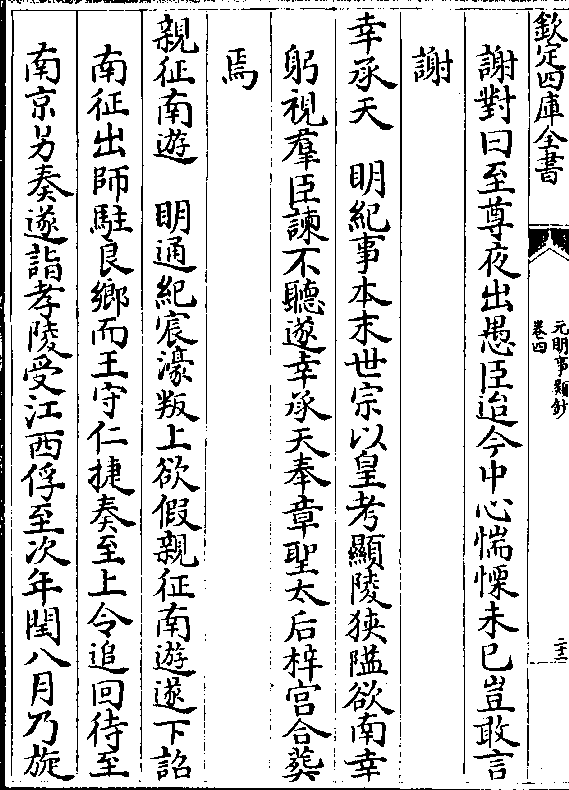 欽定四庫全書
元明事類鈔
卷四
二十三
謝對曰至尊夜出愚臣迨今中心惴慄未已豈敢言
謝
幸承天　明紀事本末世宗以皇考顯陵狹隘欲南幸
躬視羣臣諫不聽遂幸承天奉章聖太后梓宮合葬
焉
親征南遊　明通紀宸濠叛上欲假親征南遊遂下詔
南征出師駐良鄉而王守仁捷奏至上令追回待至
南京另奏遂詣孝陵受江西俘至次年閏八月乃旋